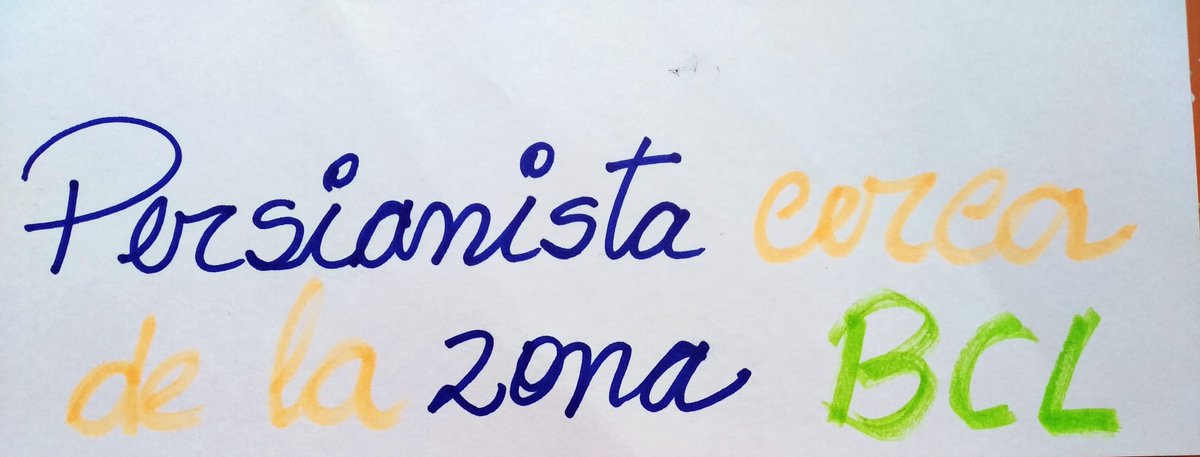 Persianista cerca
de la zona BCL